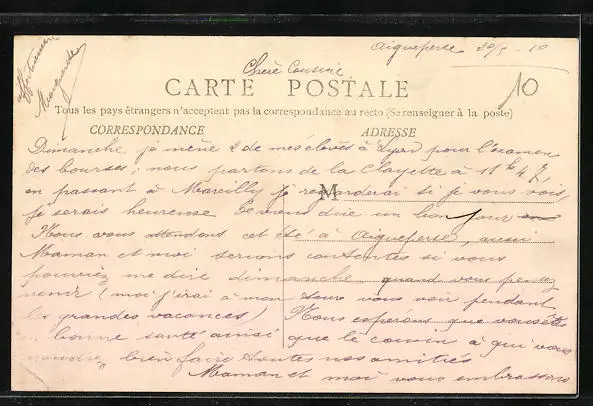 Aigueperse 20/5 - 10
Affectueusement
Marguerite
Chère Cousine
10
CARTE POSTALE
Tous les pays étrangers n'acceptent pas la correspondance au recto (Se renseigner à la poste)
CORRESPONDANCE ADRESSE
Dimanche, je mène 2 de mes élèves à Lyon pour l'examen
des bourses; nous partons de la Clayette à 11h 47,
en passant à Marcilly je regarderai si je vous vois,
M
je serais heureuse de vous dire un bonjour
Nous vous attendons cet été à Aigueperse, aussi
Maman et moi serions contentes si vous
pouviez me dire dimanche quand vous pensez
venir (moi j'irai à mon tour vous voir pendant
les grandes vacances) Nous espérons que vous êtes
en bonne santé ainsi que le cousin à qui vous
voudrez bien faire toutes nos amitiés
Maman et moi vous embrassons